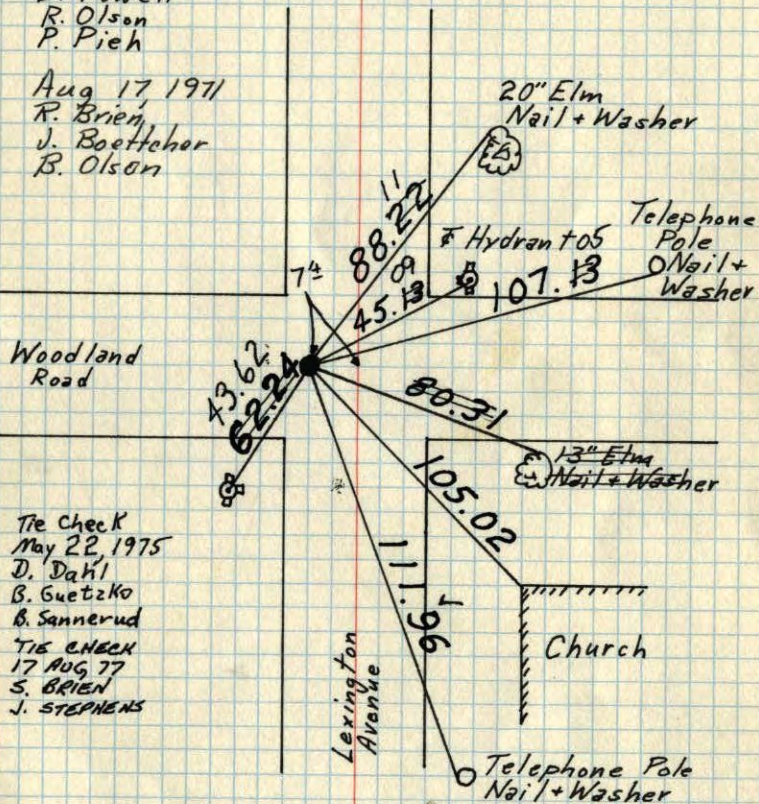 R. Olson
P. Pieh
Aug 17, 1971
R. Brien,
J. Boettcher
B. Olson
20" Elm
Nail + Washer
11
88.22
Hydrant 05
Telephone
Pole
Nail +
Washer
7 4
09
45.13
107.13
Woodland
Road
43.62
62.24
80.31
13" Elm
Nail + Washer
105.02
111.96
Tie Check
May 22, 1975
D. Dahl
B. Guetzko
B. Sannerud
TIE CHECK
17 AUG 77
S. BRIEN
J. STEPHENS
Church
Lexington
Avenue
Telephone Pole
Nail + Washer